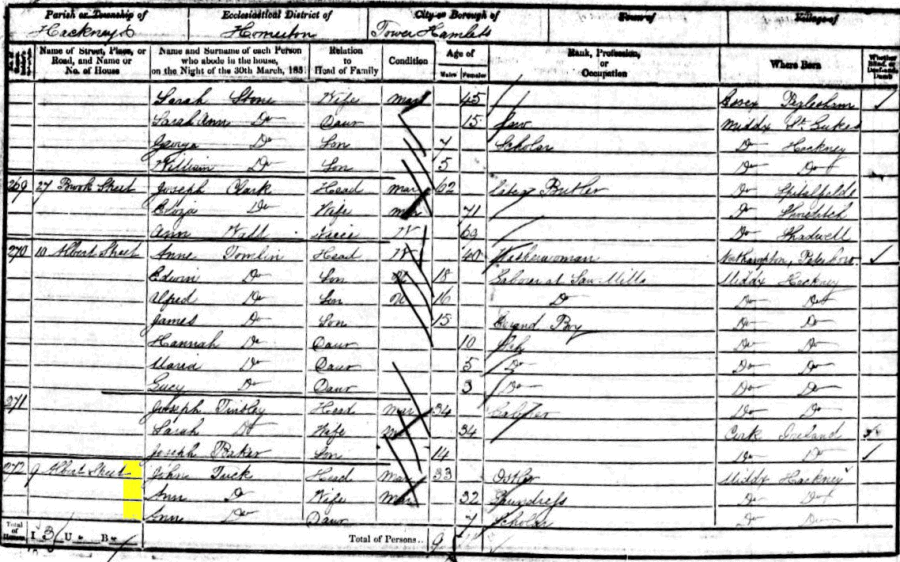 Parish or Township of Ecclesiastical District of City or Borough of Town of Village of
Hackney Homerton Tower Hamlets
Name of Street, Place, or Road, and Name or No. of House
Name and Surname of each Person who abode in the house, on the Night of the 30th March, 185
Relation to Head of Family
Condition
Age of
Males Females
Rank, Profession, or Occupation
Where Born
Sarah Stone Wife Mar 45 Essex
Sarah Ann Do Daur 15 Middx St Lukes
George Do Son 7 Scholar Do Hackney
William Do Son 5 Do Do
269 27 Brook Street Joseph Clark Head Mar 62 Butler Do Spitalfields
Eliza Do Wife Mar 71 Do Shoreditch
Ann W 69 Do Shadwell
270 10 Albert Street Anne Tomlin Head W 40 Washerwoman
Edwin Do Son 18 Labour at Saw Mills Middx Hackney
Alfred Do Son 16 Do Do Do
James Do Son 15 Errand Boy Do Do
Hannah Do Daur 10 Do Do
Maria Do Daur 5 Do Do Do
Lucy Do Daur 3 Do Do Do
271 Joseph Head Mar 34 Do Do
Sarah Do Wife 34 Cork Ireland
Joseph Baker Son 14 Do Do
272 9 Albert Street John Tuck Head Mar 33 Middx Hackney
Ann D Wife Mar 32 Laundress Do Do
Anne Do Daur 7 Scholar Do Do
Total of Houses I 3 U B Total of Persons.. 9